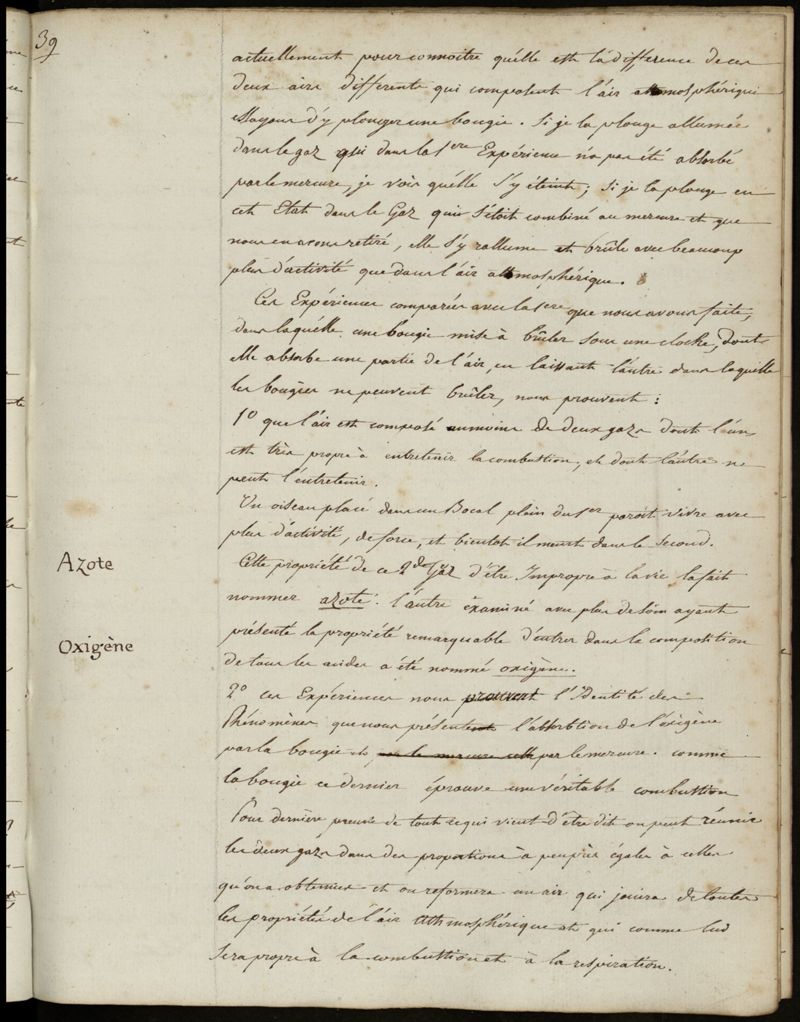 39
actuellement pour connoitre quélle est la différence de ces
deux airs differents qui composent l'air atmosphérique
Essayons d'y plonger une bougie. Si je la plonge allumée
dans le gaz qui dans la 1ere Expérience n'a pas été absorbé
par le mercure, je vois quélle s'y éteint ; Si je la plonge en
cet Etat dans le Gaz qui s'étoit combiné au mercure et que
nous en avons retiré, elle s'y rallume et brûle avec beaucoup
plus d'activité que dans l'air atmosphérique.
Ces Expériences comparées avec la 1ere que nous avons faite,
dans laquélle une bougie mise à brûler sous une cloche, dont
elle absorbe une partie de l'air, en laissant l'autre dans laquélle
les bougies ne peuvent brûler, nous prouvent :
1o que l'air est composé au moins de deux gazs dont l'un
est très propre à entretenir la combustion, et dont l'autre ne
peut l'entretenir.
Un oiseau placé dans un Bocal plein du 1er paroit vivre avec
plus d'activité, de force, et bientot il meurt dans le second.
Azote
Cette propriété de ce 2de Gaz d'être Impropre à la vie la fait
nommer azote. l'autre éxaminé avec plus de soin ayant
Oxigène
présenté la propriété remarquable d'entrer dans la composition
de tous les acides a été nommé oxigène.
2o ces Expériences nous prouvent l'Identité des
Phénomènes que nous présentent l'absorbtion de l'oxigène
par la bougie et par le mercure par le mercure. comme
la bougie ce dernier éprouve une véritable combustion
Pour dernière preuve de tout ce qui vient d'être dit on peut réunir
les deux gazs dans des proportions à peu près égales à celles
qu'on a obtenues et on reformera un air qui jouira de toutes
les propriétés de l'air athmosphérique et qui comme lui
sera propre à la combustion et à la respiration.